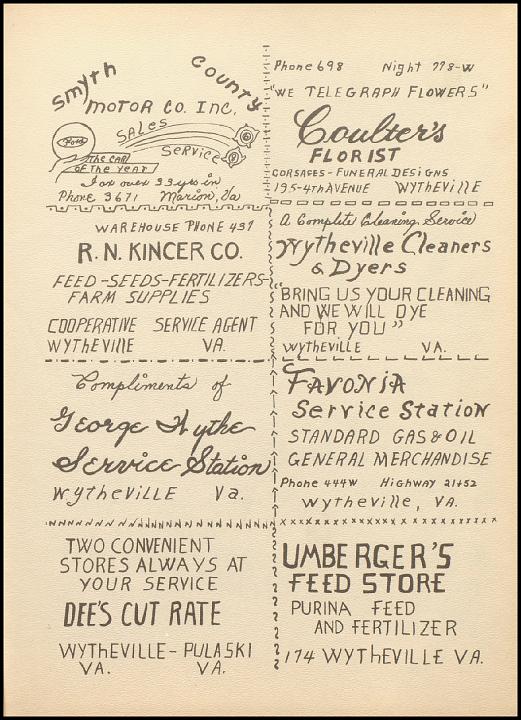 Smyth County
MOTOR CO. INC.
SALES
Ford
SERVICE
6
8
THE CAR
OF THE YEAR
For over 33 yrs in
Phone 3671 Marion, Va
Phone 698 Night 778-W
"WE TELEGRAPH FLOWERS"
Coulter's
FLORIST
CORSAGES - FUNERAL DESIGNS
195-4th AVENUE WYTHEVILLE
WAREHOUSE PHONE 437
R. N. KINCER CO.
FEED-SEEDS-FERTILIZERS-
FARM SUPPLIES
COOPERATIVE SERVICE AGENT
WYTHEVILLE VA.
A Complete Cleaning Service
Wytheville Cleaners
& Dyers
"BRING US YOUR CLEANING
AND WE WILL DYE
FOR YOU"
WYTHEVILLE VA.
Compliments of
George Wythe
Service Station
WYTHEVILLE Va.
FAVONIA
Service Station
STANDARD GAS & OIL
GENERAL MERCHANDISE
Phone 444W Highway 21+52
Wytheville, VA.
TWO CONVENIENT
STORES ALWAYS AT
YOUR SERVICE
DEE'S CUT RATE
WYTHEVILLE - PULASKI
VA. VA.
UMBERGER'S
FEED STORE
PURINA FEED
AND FERTILIZER
174 WYTHEVILLE VA.